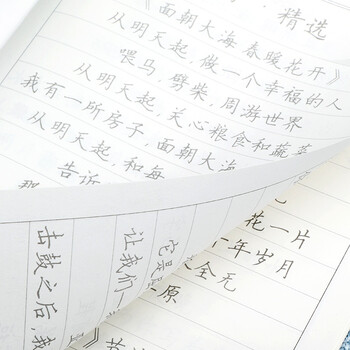 精选
《面朝大海 春暖花开》
从明天起，做一个幸福的人
喂马，劈柴，周游世界
从明天起，关心粮食和蔬菜
我有一所房子，面朝大海
从明天起，和每
告诉
那
花一片
千年岁月
全无
原
让我们一
击鼓之后，我